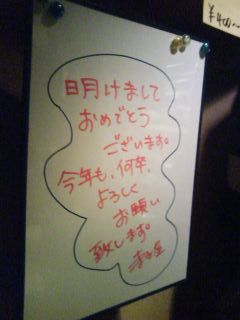 ¥400~
日月けまして
おめでとう
ございます。
今年も、何卒、
よろしく
お願い
致します。